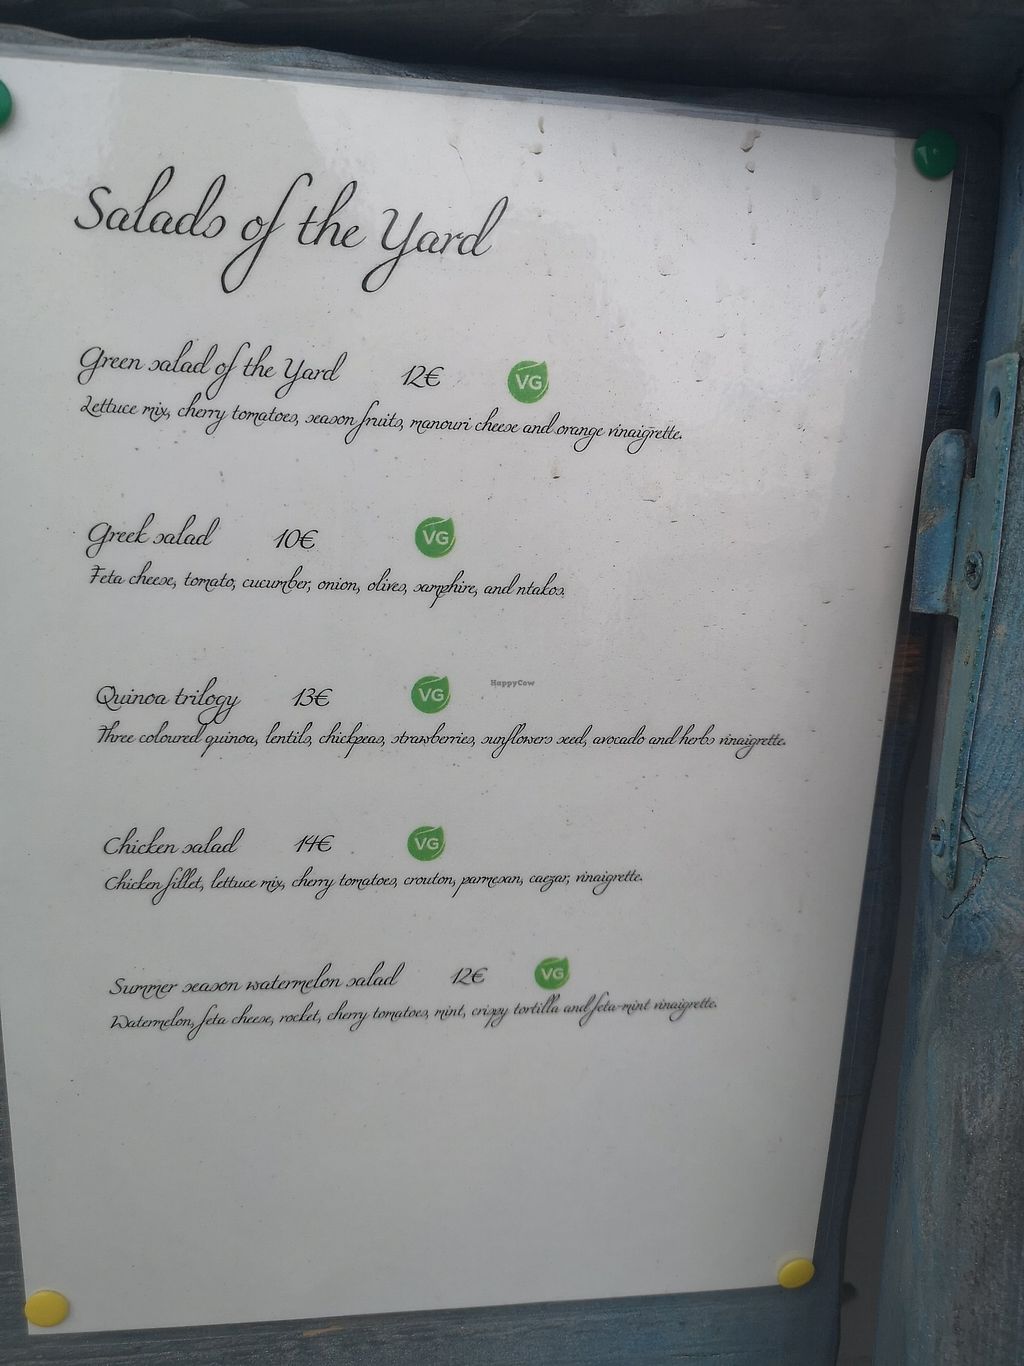 Salads of the Yard
Green salad of the Yard 12€ VG
Lettuce mix, cherry tomatoes, season fruits, manouri cheese and orange vinaigrette.
Greek salad 10€ VG
Feta cheese, tomato, cucumber, onion, olives, samphire, and ntakos.
Quinoa trilogy 13€ VG
HappyCow
Three coloured quinoa, lentils, chickpeas, strawberries, sunflowers seed, avocado and herbs vinaigrette.
Chicken salad 14€ VG
Chicken fillet, lettuce mix, cherry tomatoes, crouton, parmesan, caezar, vinaigrette.
Summer season watermelon salad 12€ VG
Watermelon, feta cheese, rocket, cherry tomatoes, mint, crispy tortilla and feta-mint vinaigrette.